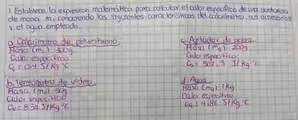 1. Establezca la expresión matemática para calcular el calor específico de una sustancia
de masa m, conociendo las siguientes características del calorímetro, sus accesorios
y el agua empleada.
a. Calorímetro de
Masa (m₁): 300g
Calor específico
b. Termómetro de vidrio
Masa (m₂): 50g
Calor específico
C₂ = 832 J/Kg °C
c. Agitador de acero
Masa (m₃): 100g
Calor específico
d. Agua
Masa (m₄): 1Kg
Calor específico
C₄ = 4186 J/Kg °C